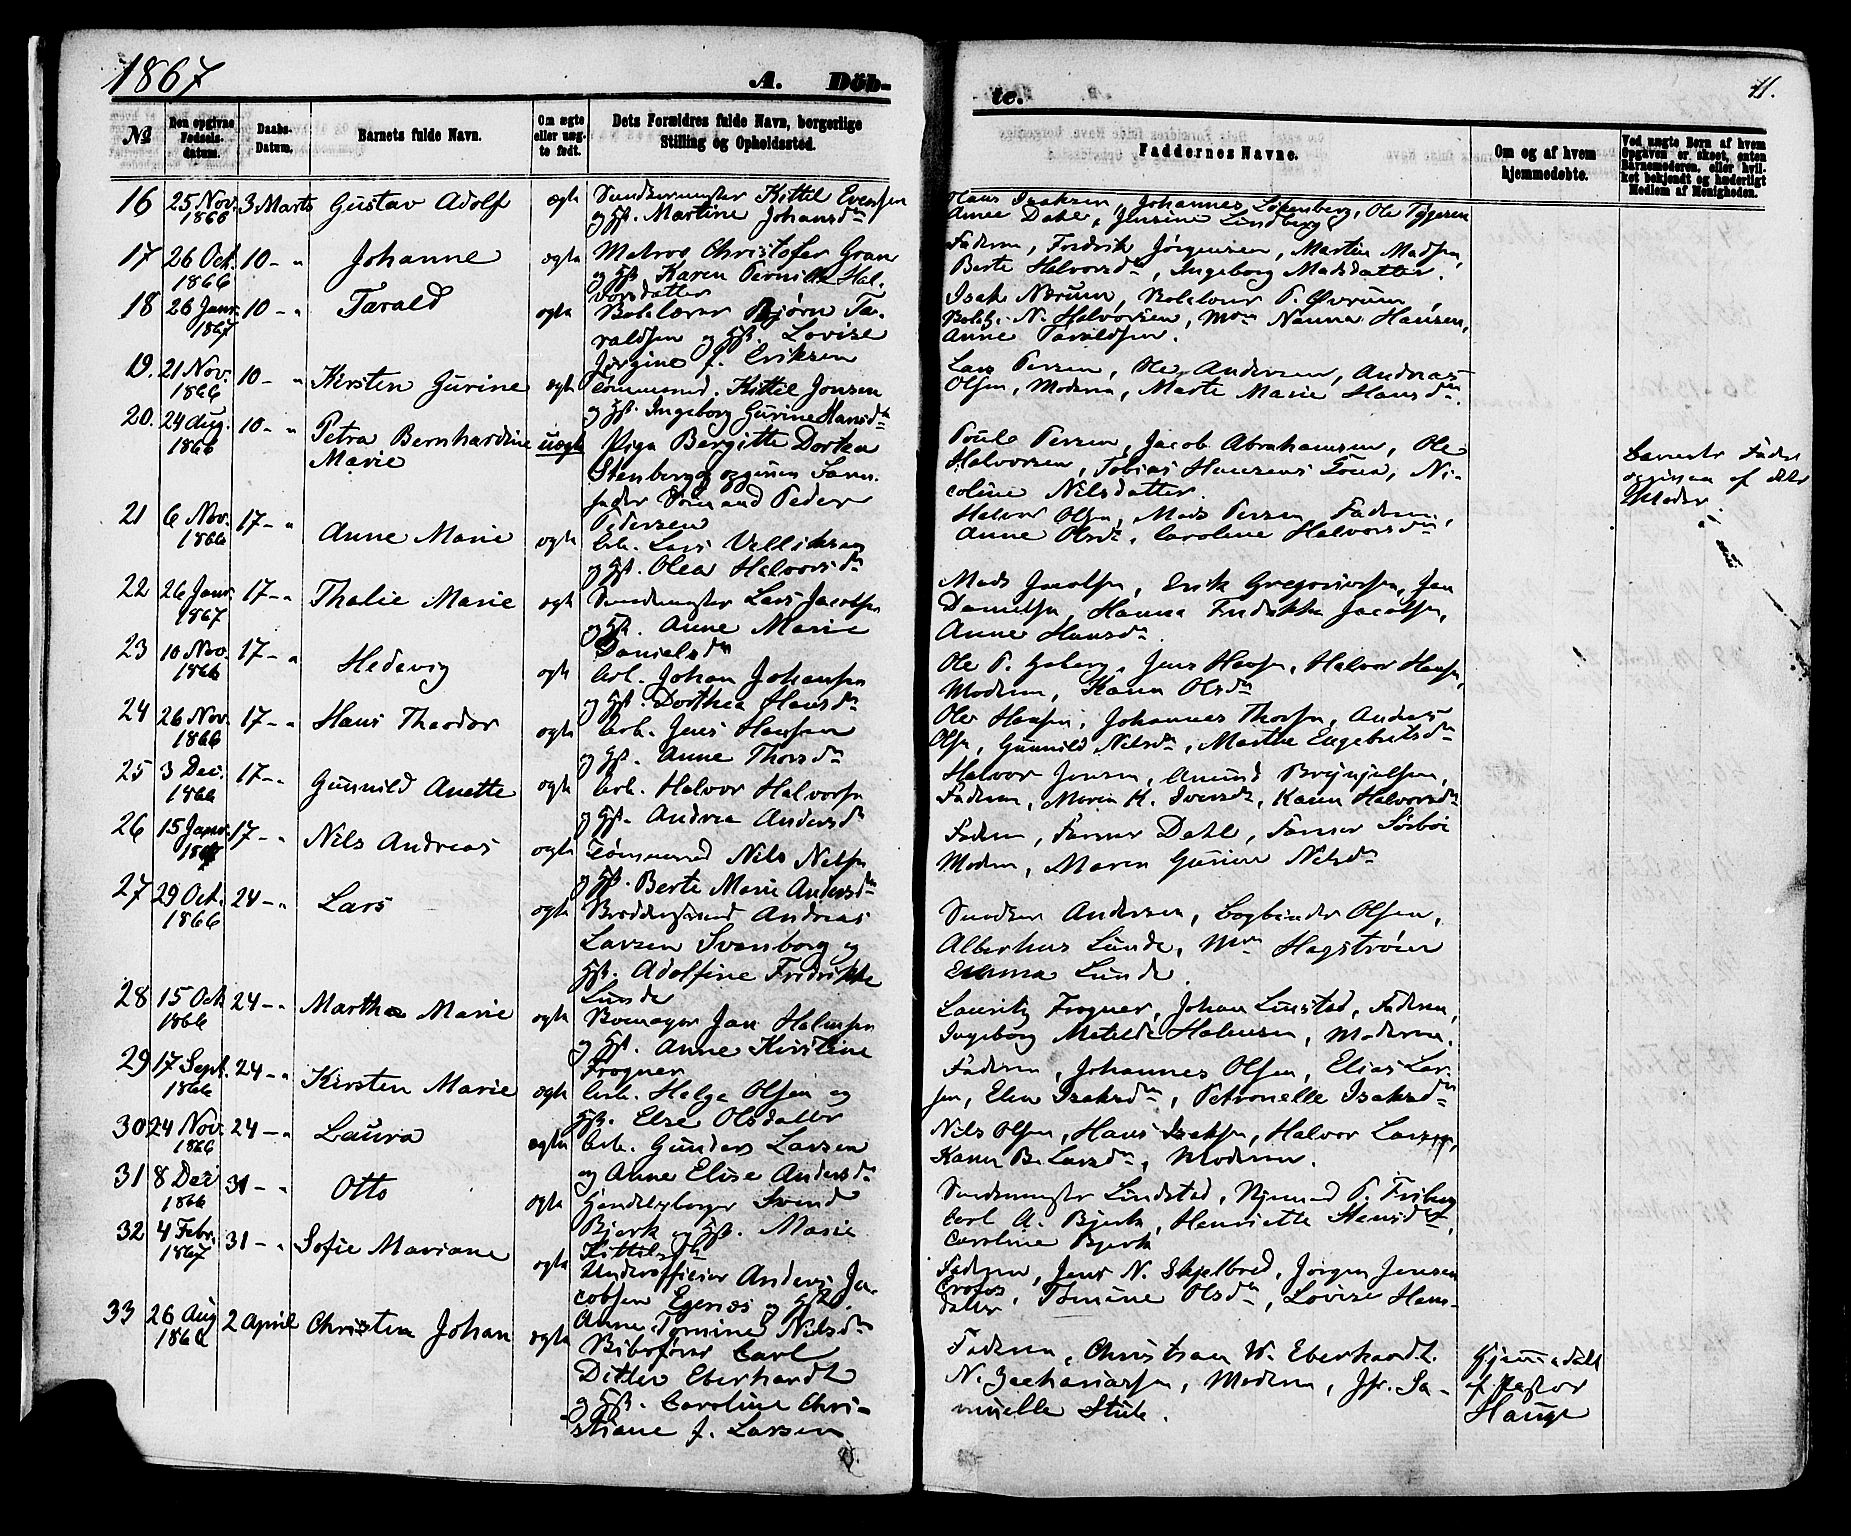 1867
A. Döb-
te.
11.
No
Den opgivne Fødsels-datum.
Daabs-Datum.
Barnets fulde Navn.
Om ægte eller uæg-te født.
Dets Forældres fulde Navn, borgerlige Stilling og Opholdssted.
Faddernes Navne.
Om og af hvem hjemmedøbte.
Ved uægte Børn af hvem Opgaven er skeet, enten Barnemoderen, eller hvil-ket bekjendt og hæderligt Medlem af Menigheden.
16 25 Nov. 1866 3 Marts Gustav Adolf ægte Kittil Evensen
og Hst. Martine Johansdn
Hans Isaksen, Johannes
Anne Dahl, Jensine Lindberg
17 26 Oct. 1866 10 - " Johanne ægte Matros Christofer Gran
og Hst. Karen Pernille Hal-
vorsdatter
Faderen, Fredrik Jørgensen, Martin Madsen,
Berte Halvorsdn, Ingeborg Madsdatter.
18 26 Janr. 1867 10 - " Tarald ægte Bjørn Ta-
raldsen og Hst. Lovise
Jørgine J. Eriksen
Isak Nærum,
N. Halvorsen, Mm Nanna Hansen,
Anne Taraldsen.
19. 21 Nov. 1866 10 - " Kirsten Gurine ægte Tømmermd. Kittil Jonsen
og Hst. Ingeborg Gurine Hansdn
Lars Persen, Ole Andersen, Andreas
Olsen, Moderen, Marte Marie Hansdn.
20. 24 Aug. 1866 10 - " Petra Bernhardine
Marie uægte Pige Bergitte Dorthea
Stenberg og opgiven Barne-
fader Sømand Peder
Pedersen
Poule Persen, Jacob Abrahamsen, Ole
Halvorsen, Tobias Hansens Kone, Ni-
coline Nilsdatter.
Barnets Fader
opgiven af dets
Moder.
21 6 Nov. 1866 17 - " Anne Marie ægte Arb. Lars
og Hst. Olea Halvorsdn
Halvor Olsen, Mads Persen, Faderen,
Anne Olsdn, Caroline Halvorsdn
22 26 Janr. 1867 17 - " Thalie Marie ægte Lars Jacobsen
og Hst. Anne Marie
Danielsdn
Mads Jacobsen, Erik Gregoriussen, Jan
Danielsen, Hanna Fredrikke Jacobsen,
Anne Hansdn.
23 10 Nov. 1866 17 - " Hedevig ægte Arb. Johan Johansen
og Hst. Dorthea Hansdn
Ole P. Jens Hansen, Halvor Hansen,
Moderen, Karen Olsdn
24 26 Nov. 1866 17 - " Hans Theodor ægte Arb. Jens Hansen
og Hst. Anne Thorsdn
Ole Hansen, Johannes Thorsen, Andreas
Olsen, Gunnild Nilsdn, Marthe Engebretsdn
25 3 Dec. 1866 17 - " Gunnild Anette ægte Arb. Halvor Halvorsen
og Hst. Andrea Andersdn
Halvor Jensen, Amund Brynjulsen,
Faderen, Maren K. Iversdn, Karen Halvorsdn
26 15 Janr. 1867 17 - " Nils Andreas ægte Tømmermd Nils Nilsen
og Hst. Berte Marie Andersdn
Faderen, Dahl, Sørbøe
Moderen, Maren Gurine Nilsdn
27 29 Oct. 1866 24 - " Lars ægte Andreas
Larsen Svanborg og
Hst. Adolfine Fredrikke
Lunde
Andersen, Bogbinder Olsen,
Lunde, Mm Hagstrøm
Emma Lunde.
28 15 Oct 1866 24 - " Martha Marie ægte Jan Halvorsen
og Hst. Anne Kirstine
Frogner
Lauritz Frogner, Johan Linstad, Faderen,
Ingeborg Matilde Halvorsen, Moderen.
29 17 Sept. 1866 24 - " Kirsten Marie ægte Arb. Helge Olsen og
Hst. Else Olsdatter
Faderen, Johannes Olsen, Elias Lar-
sen, Elen Isaksdn, Petronelle Isaksdn
30 24 Nov. 1866 24 - " Laura ægte Arb. Gunder Larsen
og Anne Elise Andersdn
Nils Olsen, Hans Isaksen, Halvor Larsen,
Karen B. Larsdn, Moderen.
31 8 Dec 1866 31 - " Otto ægte Svend
Bjerk og Hst. Marie
Kittilsdn
Lindstad, P. Friberg
Carl A. Bjerk, Henriette
Caroline Bjerk
32 4 Febr. 1867 31 - " Sofie Mariane ægte Underofficier Anders Ja-
cobsen Egenæs og Hst.
Anne Tomine Nilsdn
Faderen, Jens N. Skjelbred, Jørgen Jensen
Tomine Olsdn, Lovise Hans-
datter
33 26 Aug 1866 2 April Christen Johan ægte Carl
Ditlev Eberhardt
og Hst. Caroline Chri-
stiane J. Larsen
Faderen, Christian W. Eberhardt.
N. Zachariassen, Moderen, Jfr. Sa-
muelle Stub.
Hjemmedøbt
af Pastor
Hauge